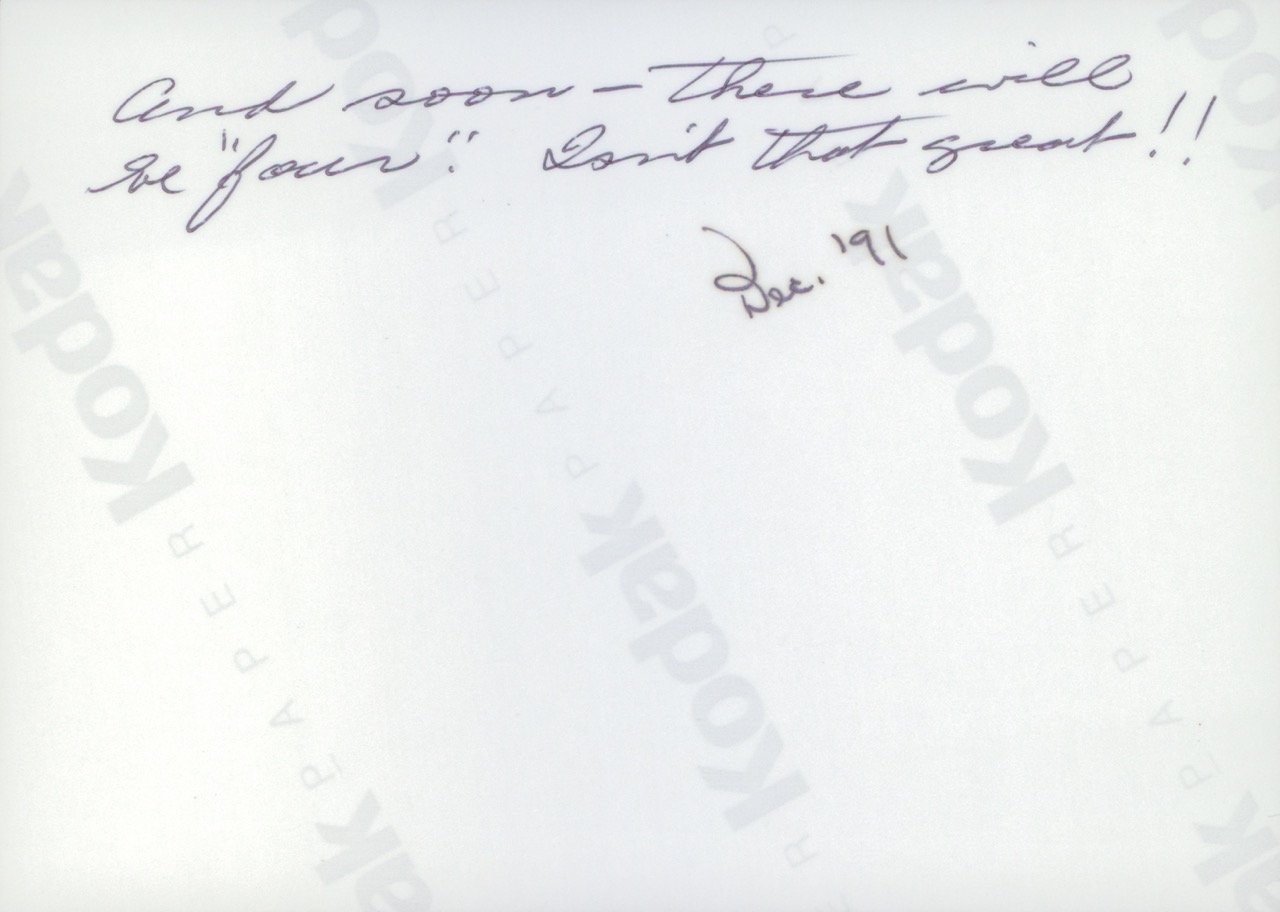 And soon - there will
be "four". Isn't that great!!
Dec. '91
Kodak
PAPER
Kodak
PAPER
Kodak
PAPER